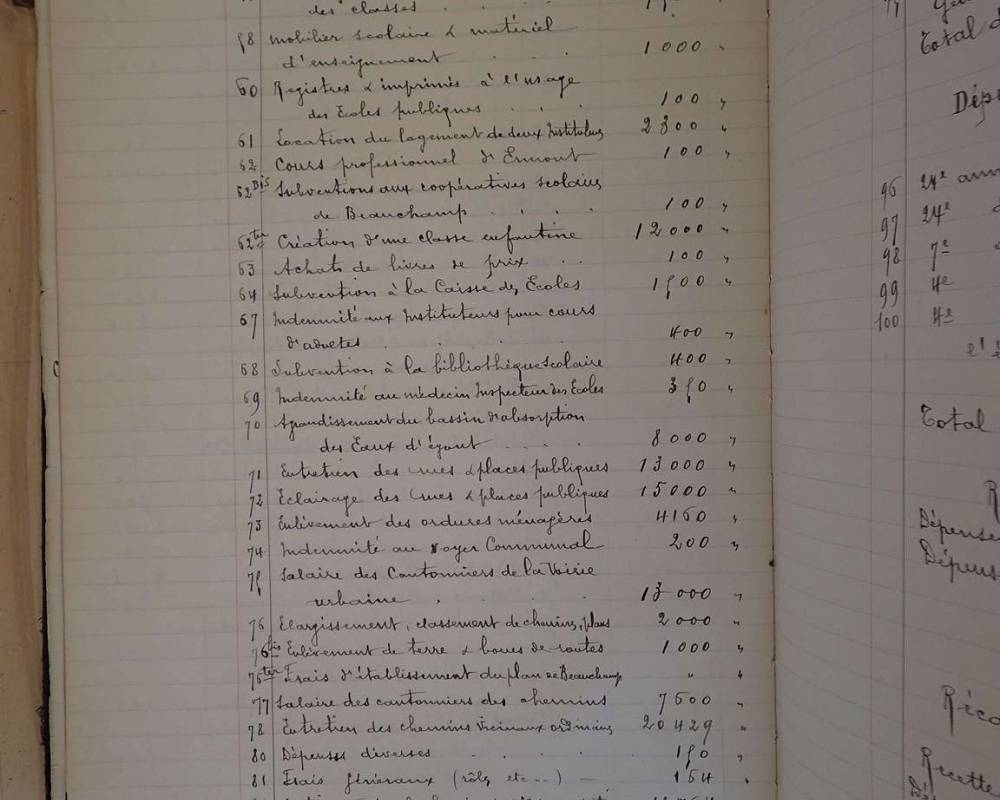 des classes . .
58 mobilier scolaire & matériel
d'enseignement . . 1000 "
60 Registres & imprimés à l'usage
des Ecoles publiques . . . 100 "
61 Location du logement de deux Instituteurs 2300 "
62 Cours professionnel d'Ermont 100 "
62 Bis Subventions aux coopératives scolaires
de Beauchamp . . . . 100 "
62 ter Création d'une classe enfantine 12000 "
63 Achats de livres de prix . . 100 "
64 Subvention à la Caisse des Ecoles 1500 "
67 Indemnité aux Instituteurs pour cours
d'adultes . . . . 400 "
68 Subvention à la bibliothèque scolaire 400 "
69 Indemnité au médecin Inspecteur des Ecoles 350 "
70 Agrandissement du bassin d'absorption
des Eaux d'égout . . . 8000 "
71 Entretien des rues & places publiques 13000 "
72 Eclairage des rues & places publiques 15000 "
73 Enlèvement des ordures ménagères 4160 "
74 Indemnité au voyer Communal 200 "
75 Salaire des Cantonniers de la Voirie
urbaine . . . . 13000 "
76 Elargissement, classement de chemins, plans 2000 "
76 bis Enlèvement de terre & boues de routes 1000 "
76 ter Frais d'établissement du plan de Beauchamp " "
77 Salaire des cantonniers des chemins 7600 "
78 Entretien des chemins vicinaux ordinaires 20429 "
80 Dépenses diverses . . . . 150 "
81 Frais généraux (rôles, etc...) — 154 "
Total
Dép
96 24e ann
97 24e
98 7e
99 4e
100 4e
l'
Total
R
Dépense
Dépens
Réca
Recette
Dé